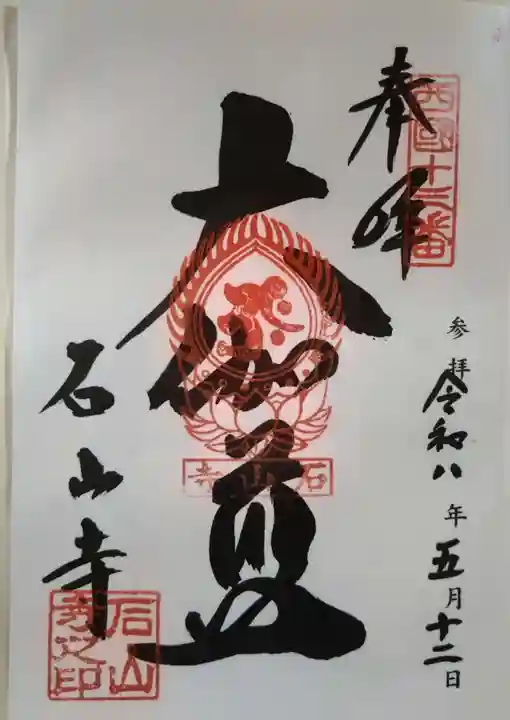 奉拝
西國十三番
参拝令和八年五月十二日
大伽藍
石山寺
石山寺
石山寺之印